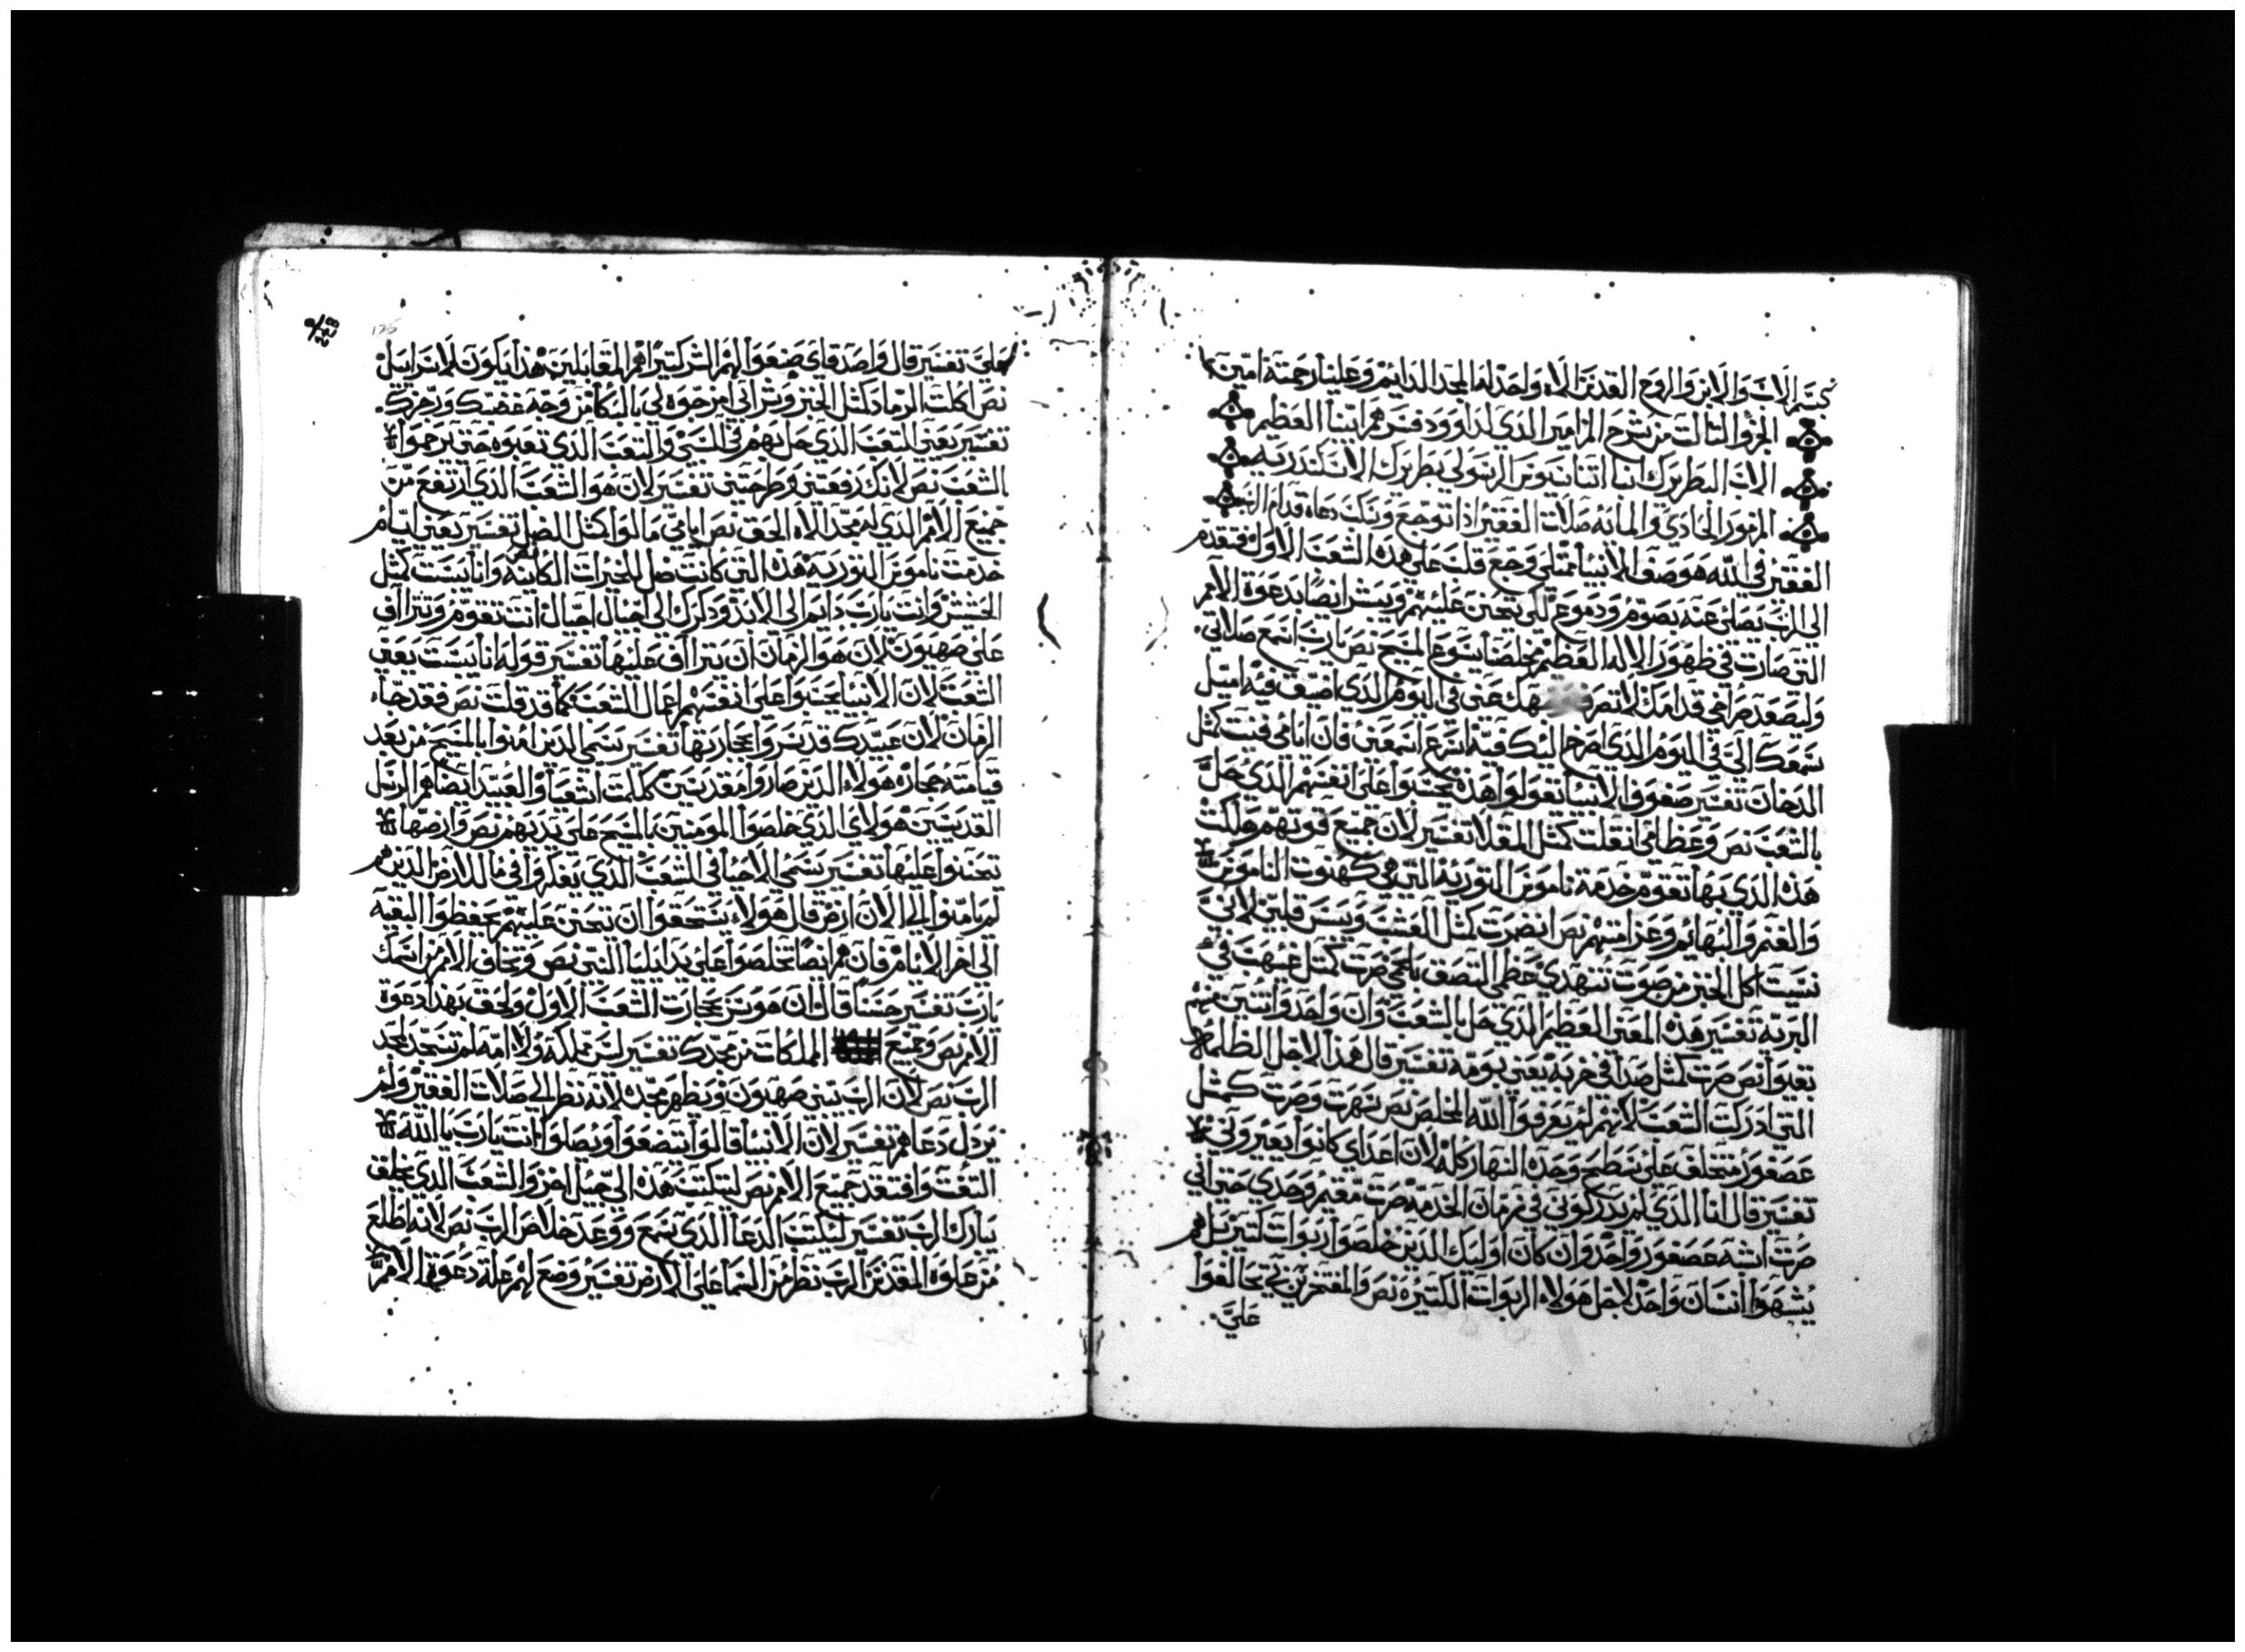 بسم الاب والابن والروح القدس الاه واحد له المجد الدايم وعلينا رحمته امين
الجزو التالت من شرح المزامير الذي لداوود فسرهم ابينا العظيم
الاب البطريرك انبا اتناسيوس الرسولي بطريرك الاسكندريه
المزمور الحادي والمايه صلات الفقير اذا توجع وسكب دعاه قدام الرب
الفقير في الله هو صف الانبيا ممتلي وجع قلب علي هذه الشعب الاول فتقدم
الي الرب يصلي عنه بصوم ودموع لكي يتحنن عليهم ويبشر ايضا بدعوة الامم
التي صارت في ظهور الاله العظيم مخلصنا يسوع المسيح نص يارب اسمع صلاتي
وليصعد صراخي قدامك لا تصرف وجهك عني في اليوم الذي اضيق فيه اميل
سمعك الي في اليوم الذي اصرخ اليك فيه اسرع اسمعني فان ايامي فنيت كمثل
الدخان تفسير صفوف الانبيا يقولوا هذه يحسبوا علي انفسهم الذي حل
بالشعب نص وعظامي انقلت كمثل المقلا تفسير لان جميع قوتهم هلكت
هذه الذي بها تقوم خدمة ناموس التوريه التي هي كهنوت الناموس
والغنم والبهايم وعزامتهم نص انضرت كمثل العشب ويبس قلبي لاني
نسيت اكل الخبز من صوت تنهدي عظمي التصق بلحمي صرت كمتل غيهب في
البريه تفسير هذه المعني العظيم الذي حل بالشعب وان واحد واتنين منهم
بقيوا نص صرت كمثل صدا في خربه يعني بومه تفسير قال هذا لاجل الظلمه
التي ادركت الشعب لانهم لم يعرفوا الله المخلص نص سهرت وصرت كمتل
عصفور متخلف علي سطح وحده النهار كله لان اعداي كانوا يعيروني
تفسير قال انا الذي لم يدركوني في زمان الخدمه صرت مقيم وحدي حتي اني
صرت اشبه عصفور واحد وان كان اوليك الذين خلصوا ربوات كتير بل هم
يشبهوا انسان واحد لاجل هولاء الربوات الكتيره نص والمفتخرين بي تحالفوا
علي
علي تفسير قال واصدقاي صنعوا لهم الشر كتيرا هم المقابلين هذا يكون لاسراييل
نص اكلت الرماد كمثل الخبز وشرابي امزجوه لي بالبكا من وجه غضبك ورجزك
تفسير يعني التعب الذي حل بهم في السبي والتعب الذي تعبوه حتي يرحموا
الشعب نص لانك رفعتني وطرحتني تفسير لان هو الشعب الذي ارتفع من
جميع الامم الذي له مجد الاه الحق نص ايامي مالوا كمثل الضل تفسير يعني ايام
خدمت ناموس التوريه هذه التي كانت ضل للخيرات الكاينه وانا يبست كمثل
الحشيش وانت يارب دايم الي الابد ودكرك الي جيال اجيال انت تقوم وتتراأف
علي صهيون لان هو الزمان ان يتراأف عليها تفسير قوله انا يبست يعني
الشعب لان الانبيا يحسبوا علي انفسهم اعمال الشعب كما قد قلت نص فقد جاء
الزمان لان عبيدك قد سروا بحجارتها تفسير يسمي الذين امنوا بالمسيح من بعد
قيامته حجاره هولاء الذين صاروا مقدسين ككلمت اشعيا والعبيد ايضا هم الرسل
القديسين هولاي الذي خلصوا المومنين بالمسيح علي يديهم نص وارضها
يتحننوا عليها تفسير يسمي الاحيا في الشعب الذي يفكروا في ما للارض الذين هم
لم يامنوا الي الان ارض قال هولاء يستحقوا ان يتحنن عليهم يحفظوا البقيه
الي اخر الايام فان هم ايضا يخلصوا علي يد ايليا النبي نص وتخاف الامم من اسمك
يارب تفسير حسنا قال ان هو سر بحجارت الشعب الاول ولحق بهذا دعوة
الامم نص وجميع الملكات من مجدك تفسير ليس مملكه ولا امه لم تسجد لمجد
الرب نص لان الرب يبني صهيون ويظهر مجده لانه نظر الي صلات الفقير ولم
يردل دعاهم تفسير لان الانبيا قالوا بتضعوا ويصلوا انت يارب يا الله
التفت وافتقد جميع الامم نص ليتكتب هذه الي جيل اخر والشعب الذي يخلق
يبارك الرب تفسير ليكتب الدعا الذي سمع ووعد خلاص الرب نص لانه اطلع
من علوه المقدس الرب نظر من السما علي الارض تفسير وضع لهم علة دعوة الامم